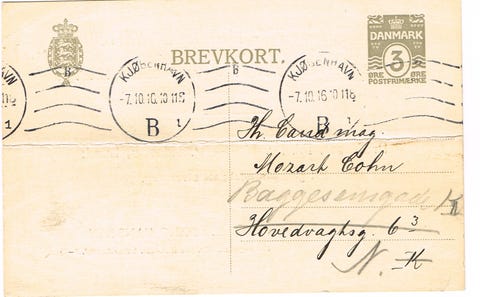 BREVKORT.
DANMARK
3
ØRE ØRE
POSTFRIMÆRKE
KJØBENHAVN
-7.10.16.10-11F
B 1
KJØBENHAVN
-7.10.16.10-11F
B 1
B
B
Hr. Cand. mag.
Mozart Cohn
Baggesensgade
Hovedvagtsg. 6 3
N. K